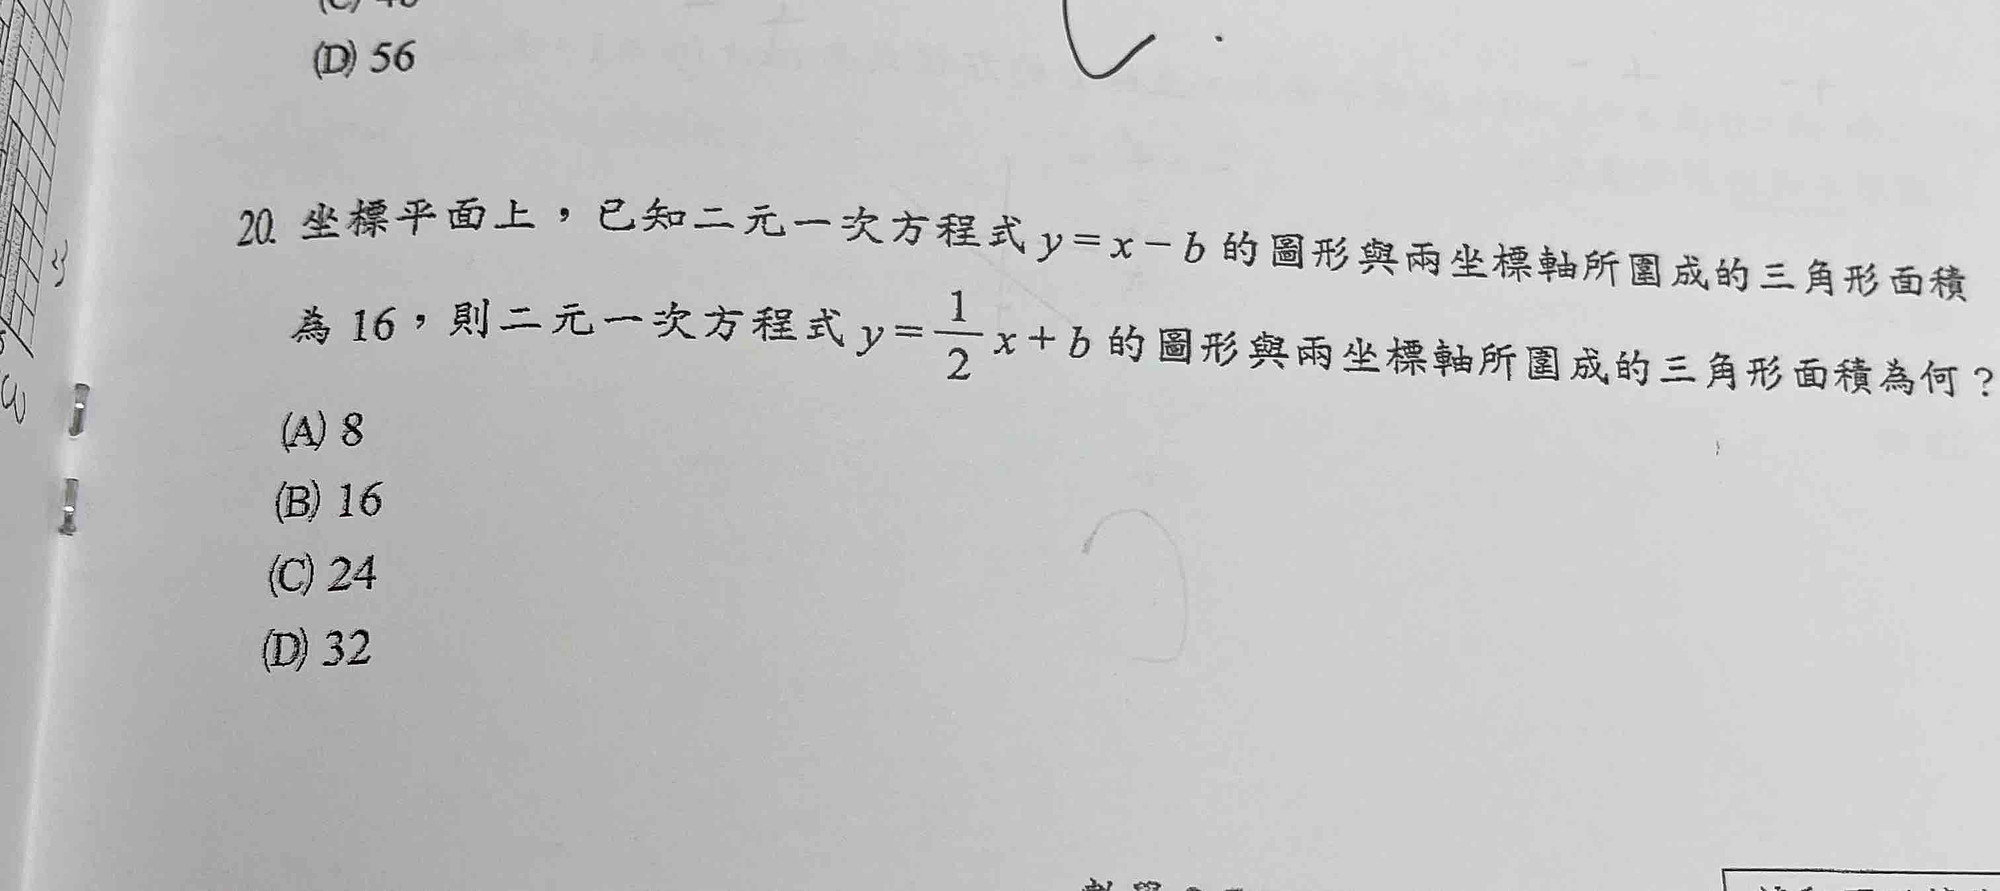 (D) 56
20. 坐標平面上，已知二元一次方程式 y=x-b 的圖形與兩坐標軸所圍成的三角形面積
為 16，則二元一次方程式 y=\frac{1}{2}x+b 的圖形與兩坐標軸所圍成的三角形面積為何？
(A) 8
(B) 16
(C) 24
(D) 32